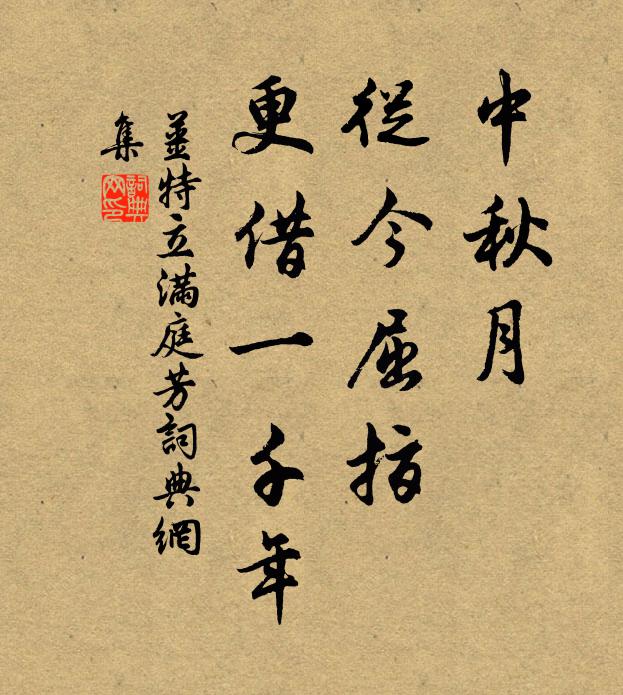 中秋月
從今屈指
更借一千年
姜特立滿庭芳詞典網
集
詞典
网印